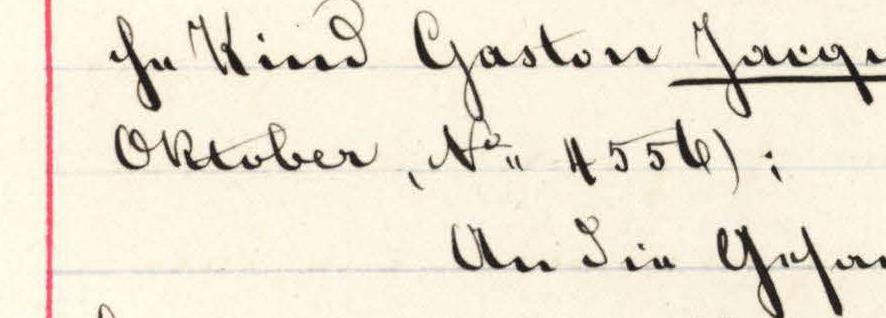 Kind Gaston Jacq
Oktober, No. 4556);
An die Gesan